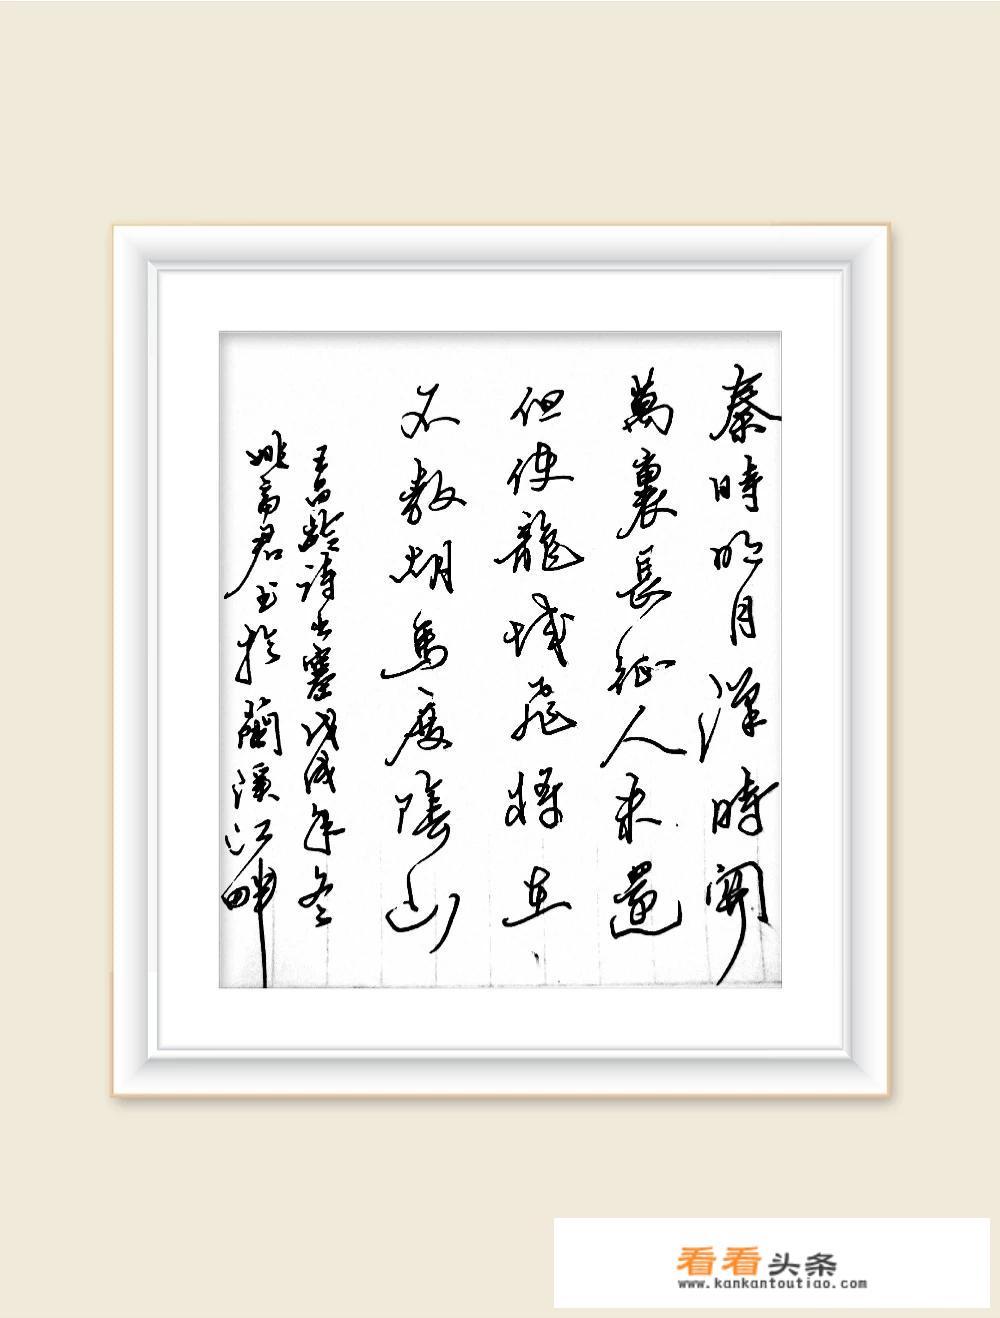 秦時明月漢時關
萬裏長征人未還
但使龍城飛將在
不教胡馬度陰山
王昌龄诗出塞戊戌年冬
姚君书於蘭溪江畔
看看头条
www.kankantoutiao.com